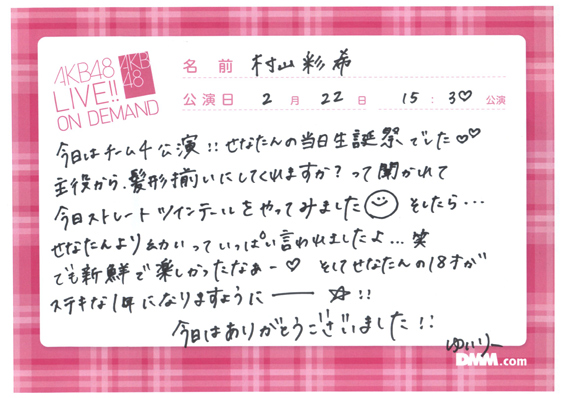 AKB48
LIVE!!
ON DEMAND
AKB
48
名前 村山彩希
公演日 2月22日 15:30公演
今日はチーム4公演!!せなたんの当日生誕祭でした♡♡
主役から、髪形揃いにしてくれますか?って聞かれて
今日ストレートツインテールをやってみました☺そしたら…
せなたんより幼いっていっぱい言われましたよ…笑
でも新鮮で楽しかったなぁー♡ そしてせなたんの18才が
ステキな1年になりますように――☆!!
今日はありがとうございました!!
ゆいりー
DMM.com